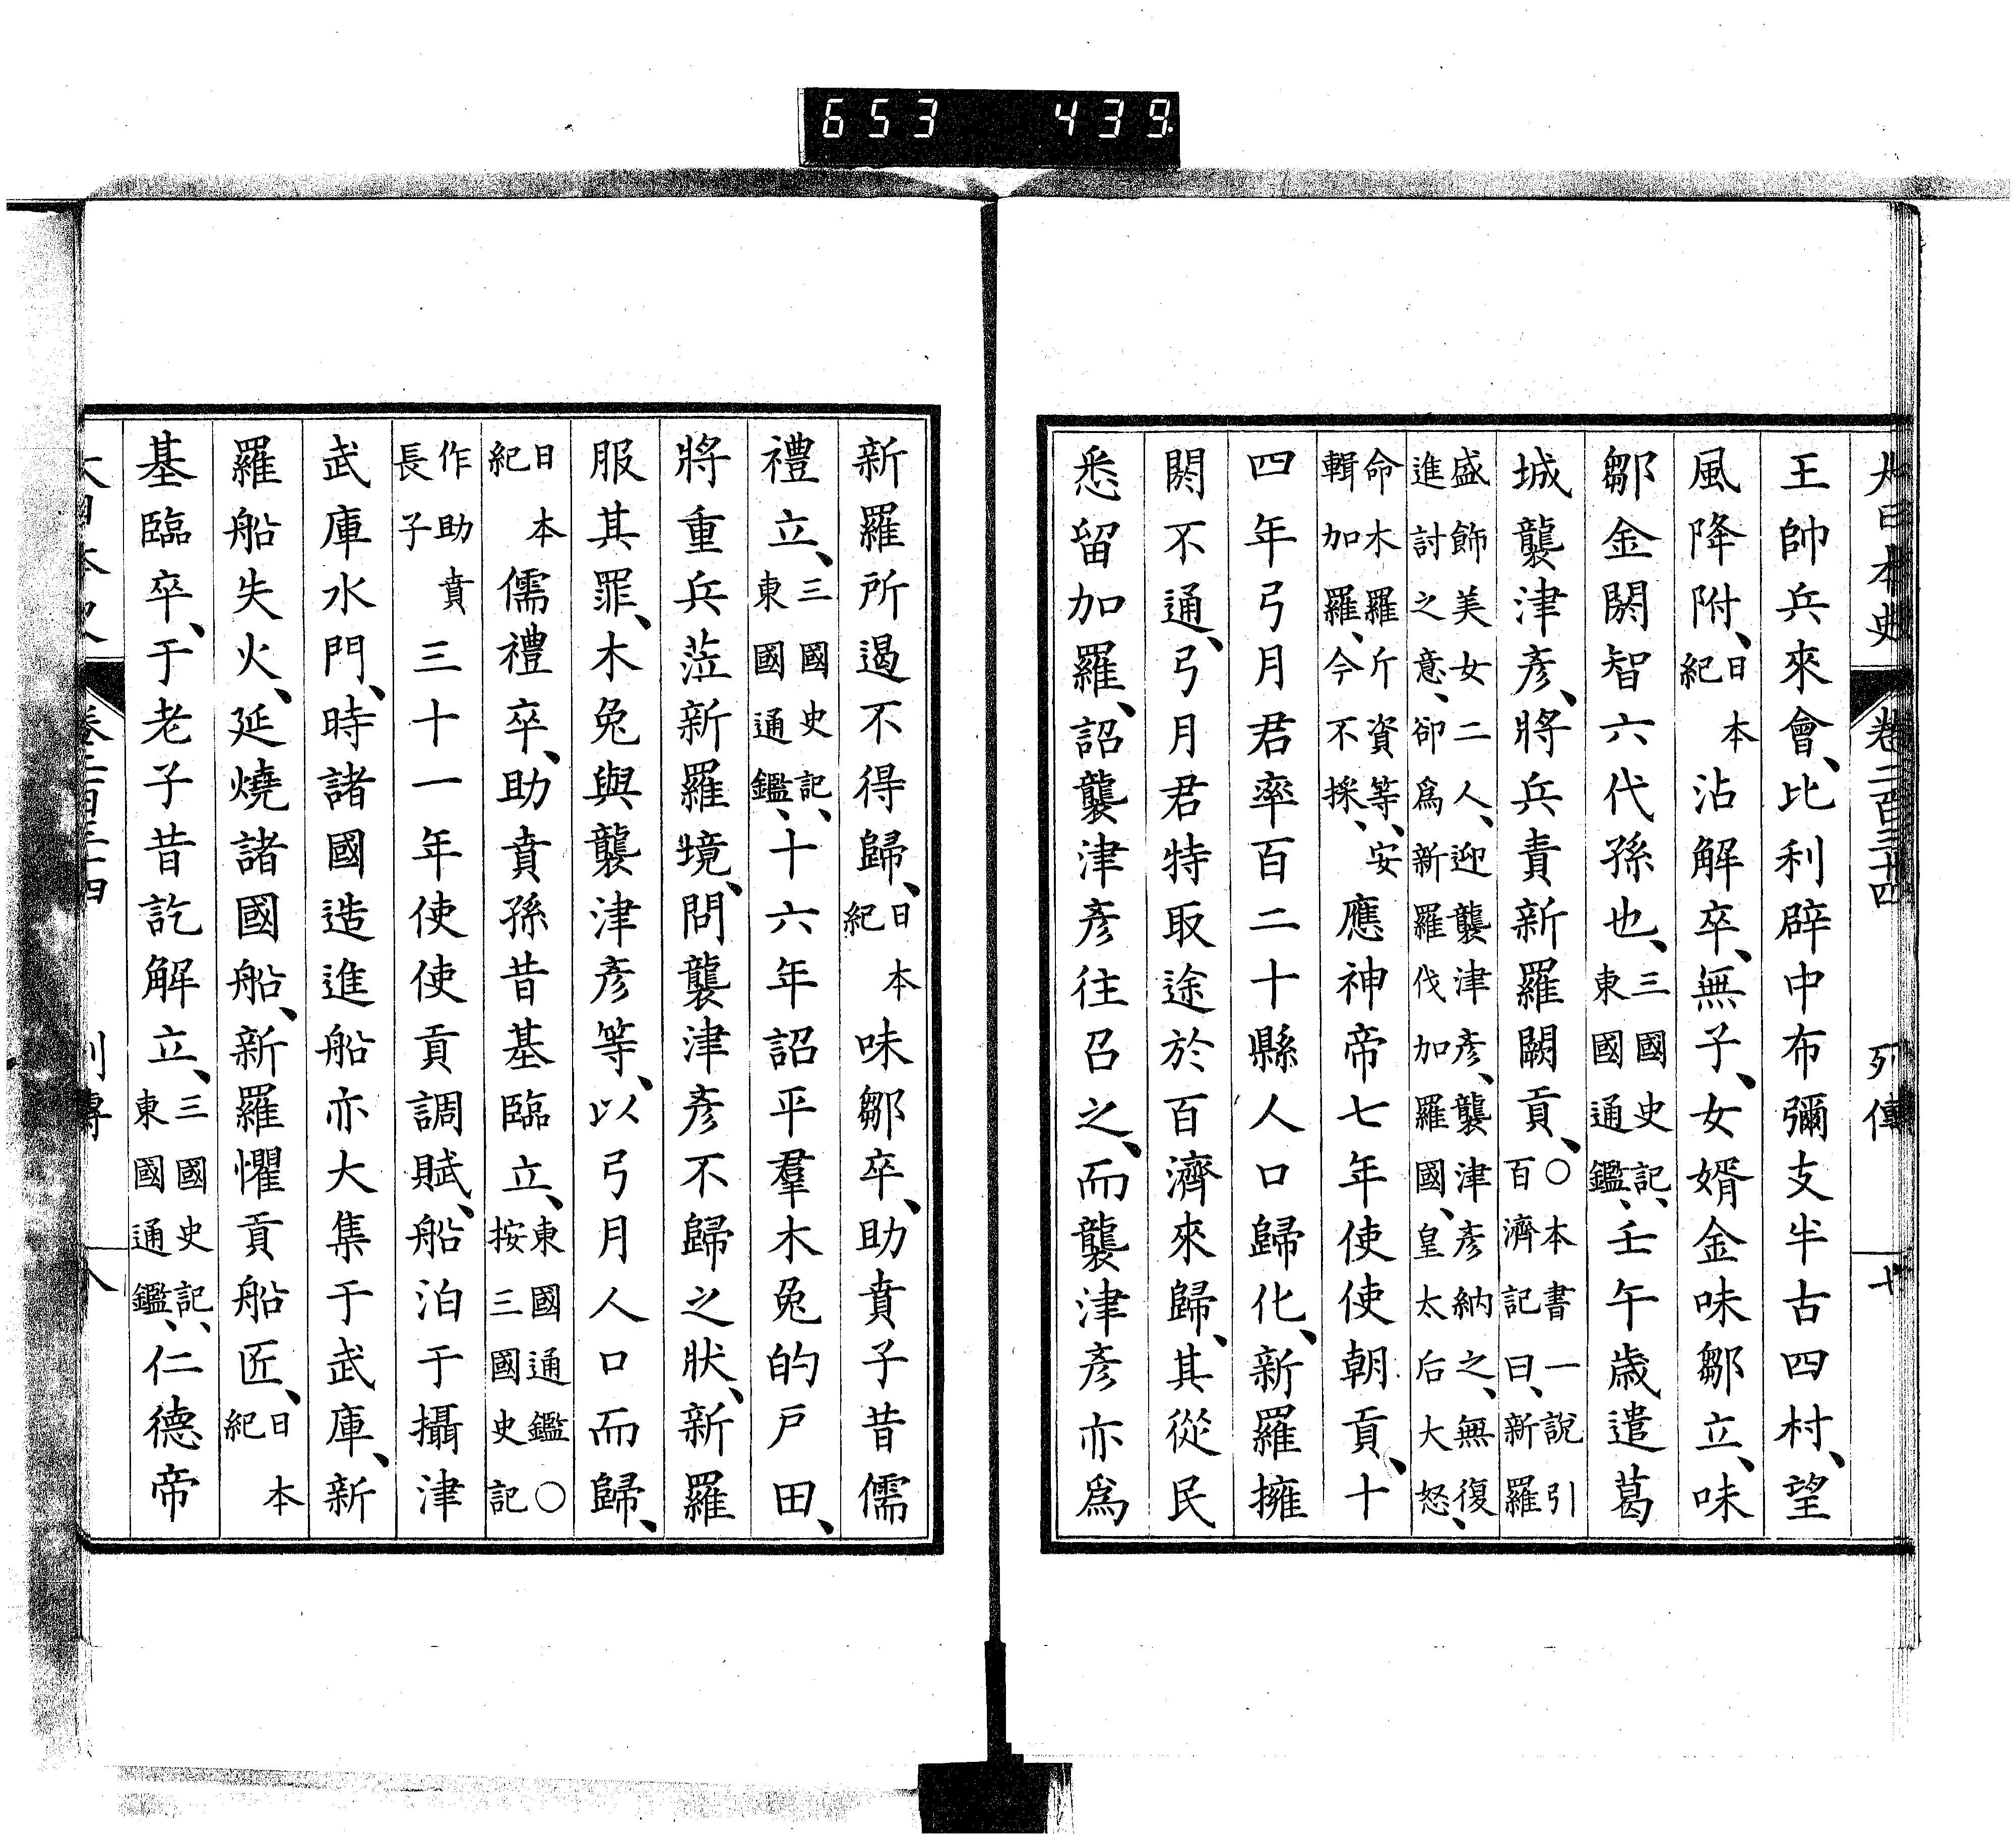 653 439
大日本史 卷二百三十四 列傳 十
王帥兵來會、比利辟中布彌支半古四村、望
風降附、日本紀 沾解卒、無子、女婿金味鄒立、味
鄒金閼智六代孫也、三國史記、東國通鑑、壬午歲遣葛
城襲津彥、將兵責新羅闕貢、○本書一說引百濟記曰、新羅
盛飾美女二人、迎襲津彥、襲津彥納之、無復進討之意、卻爲新羅伐加羅國、皇太后大怒、
命木羅斤資等、安輯加羅、今不採、應神帝七年使使朝貢、十
四年弓月君率百二十縣人口歸化、新羅擁
閼不通、弓月君特取途於百濟來歸、其從民
悉留加羅、詔襲津彥往召之、而襲津彥亦爲
新羅所遏不得歸、日本紀 味鄒卒、助賁子昔儒
禮立、三國史記、東國通鑑、十六年詔平羣木兔的戶田、
將重兵蒞新羅境、問襲津彥不歸之狀、新羅
服其罪、木兔與襲津彥等、以弓月人口而歸、
日本紀 儒禮卒、助賁孫昔基臨立、東國通鑑○按三國史記
作助賁長子 三十一年使使貢調賦、船泊于攝津
武庫水門、時諸國造進船亦大集于武庫、新
羅船失火、延燒諸國船、新羅懼貢船匠、日本紀
基臨卒、于老子昔訖解立、三國史記、東國通鑑、仁德帝